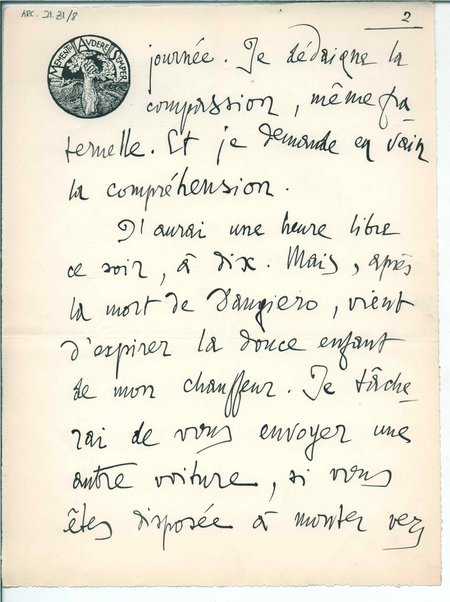 ARC. 21.31/8
2
MEMENTO AVDERE SEMPER
journée. Je dédaigne la
compassion, même fra
ternelle. Et je demande en vain
la compréhension.
J'aurai une heure libre
ce soir, à dix. Mais, après
la mort de Dangiero, vient
d'expirer la douce enfant
de mon chauffeur. Je tâche-
rai de vous envoyer une
autre voiture, si vous
êtes disposée à monter vers